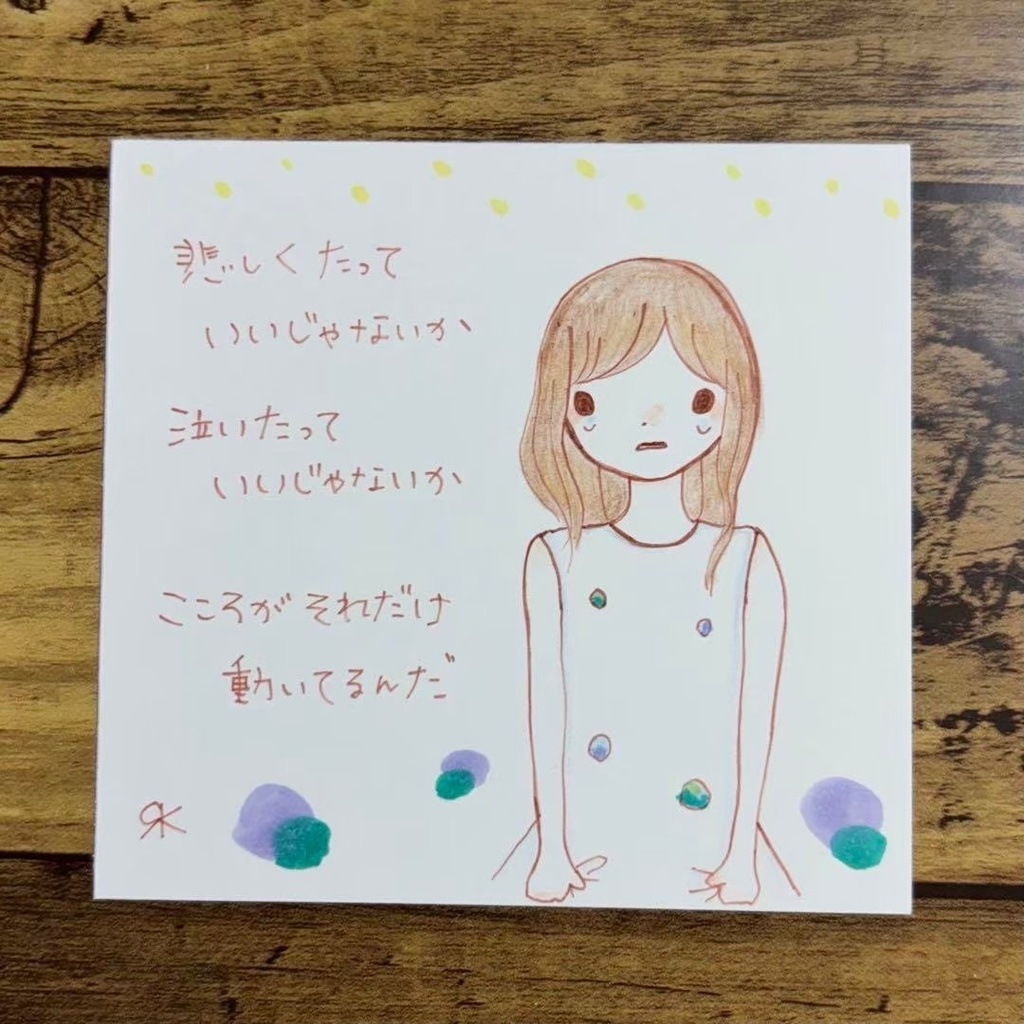 悲しくたって
いいじゃないか
泣いたって
いいじゃないか
こころがそれだけ
動いてるんだ